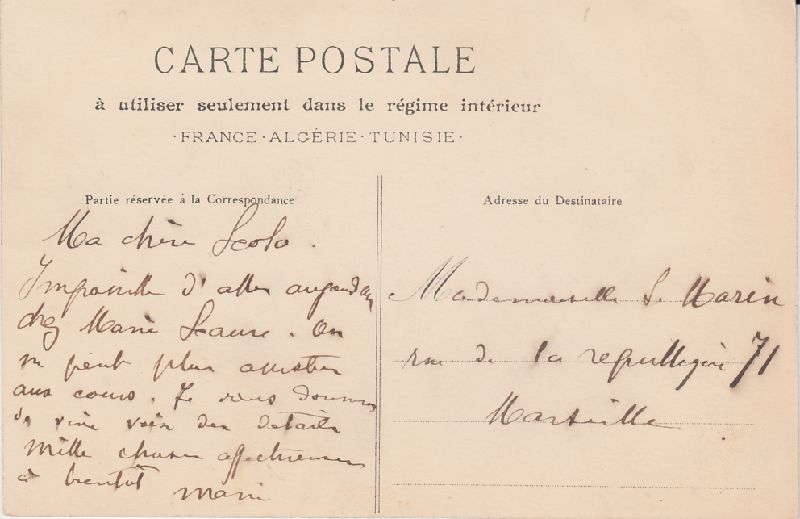 CARTE POSTALE
à utiliser seulement dans le régime intérieur
·FRANCE·ALGÉRIE·TUNISIE·
Partie réservée à la Correspondance
Ma chère
Impossible d'aller
chez Marie Laure. On
ne peut plus assister
aux cours. Je vous
de vive voix des détails
mille choses
à bientôt Marie
Adresse du Destinataire
Mademoiselle S. Marin
rue de la republique 71
Marseille